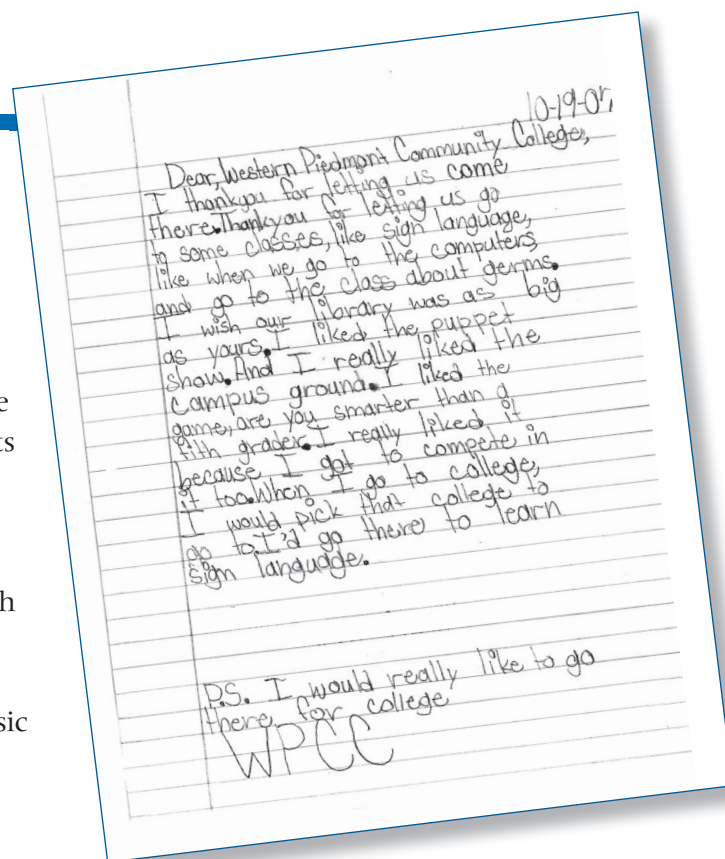 10-19-07
Dear, Western Piedmont Community College,
I thankyou for letting us come
there. Thankyou for letting us go
to some classes, like sign language,
like when we go to the computers
and go to the class about germs.
I wish our library was as big
as yours. I liked the puppet
show. And I really liked the
campus ground. I liked the
game, are you smarter than a
fith grader. I really liked it
because I got to compete in
it too. When I go to college,
I would pick that college to
go to. I'd go there to learn
sign languadge.
P.S. I would really like to go
there for college
WPCC
e
ts
h
sic